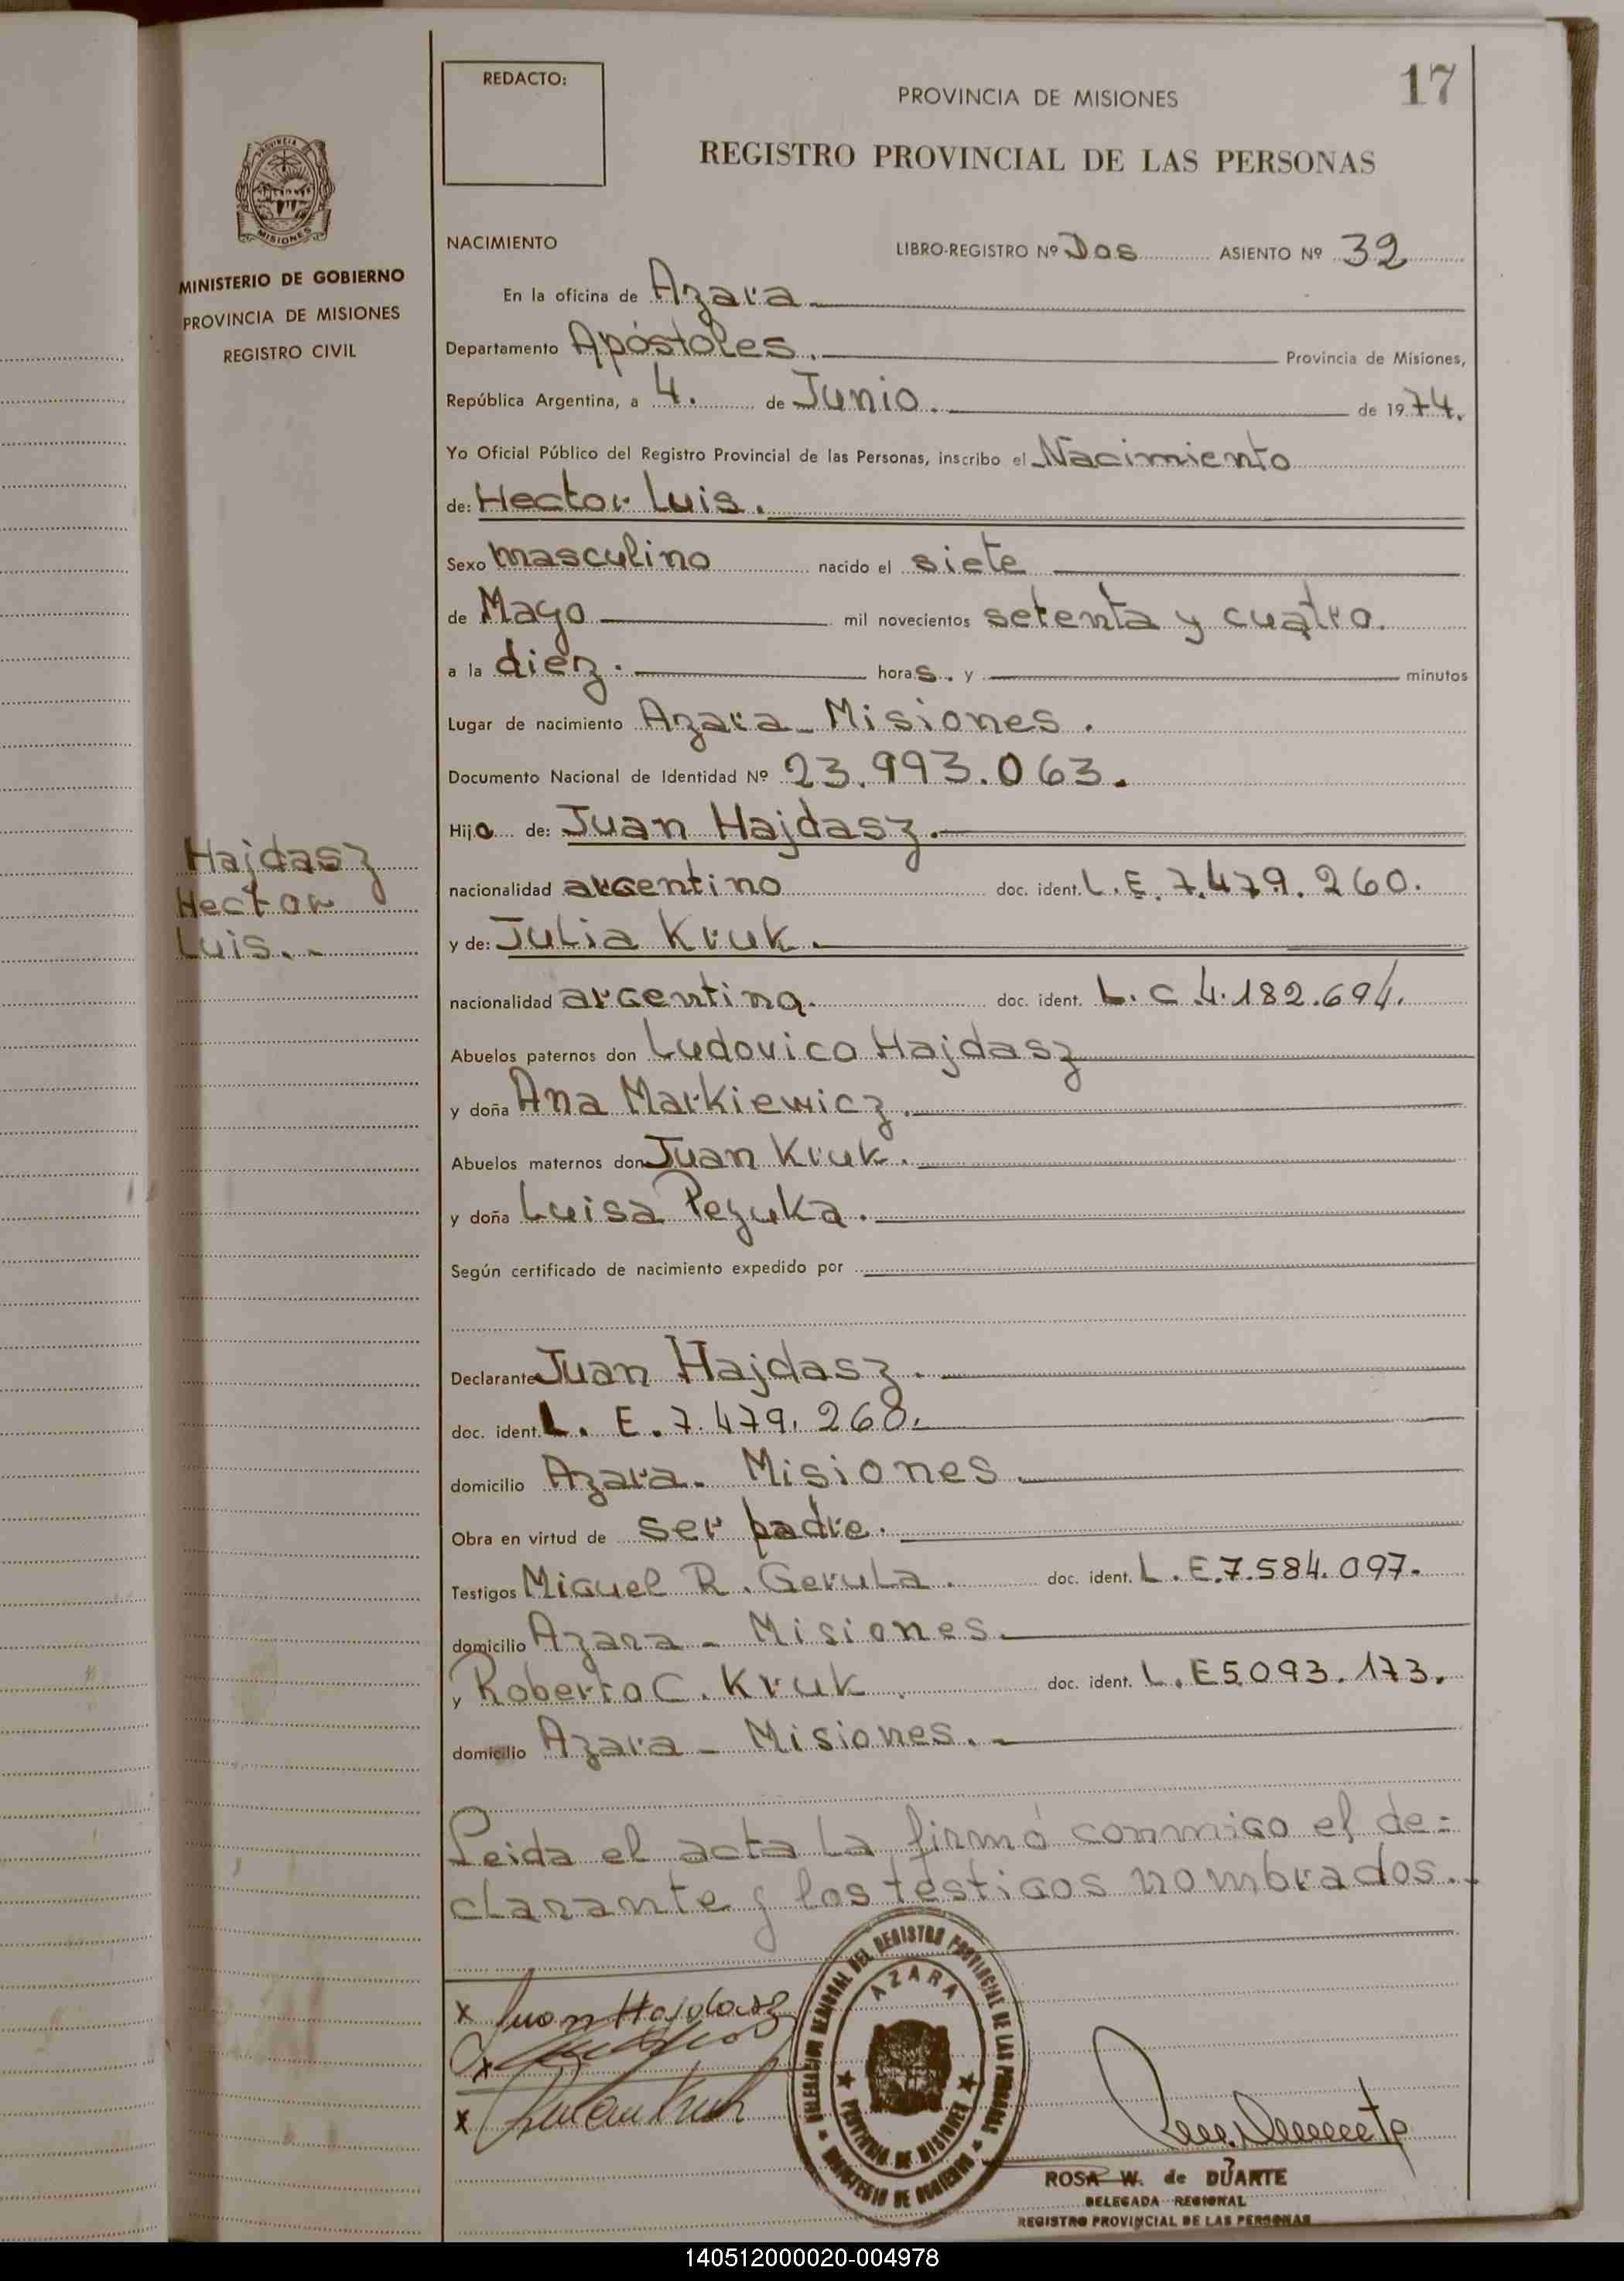 17
REDACTO:
PROVINCIA DE MISIONES
REGISTRO PROVINCIAL DE LAS PERSONAS
PROVINCIA DE
MISIONES
MINISTERIO DE GOBIERNO
PROVINCIA DE MISIONES
REGISTRO CIVIL
NACIMIENTO LIBRO-REGISTRO Nº Dos ASIENTO Nº 32
En la oficina de Azara
Departamento Apóstoles. Provincia de Misiones,
República Argentina, a 4. de Junio. de 1974.
Yo Oficial Público del Registro Provincial de las Personas, inscribo el Nacimiento
de: Hector Luis.
Sexo masculino nacido el siete
de Mayo mil novecientos setenta y cuatro.
a la diez. horas. y minutos
Lugar de nacimiento Azara Misiones.
Documento Nacional de Identidad Nº 23.993.063.
Hijo de: Juan Hajdasz.
Hajdasz
Hector
Luis.-
nacionalidad argentino doc. ident. L.E. 7.479.260.
y de: Julia Kruk.
nacionalidad argentina. doc. ident. L.C 4.182.694.
Abuelos paternos don Ludovico Hajdasz
y doña Ana Markiewicz.
Abuelos maternos don Juan Kruk.
y doña Luisa Pezuka.
Según certificado de nacimiento expedido por
Declarante Juan Hajdasz.
doc. ident. L. E. 7.479.260.
domicilio Azara. Misiones.
Obra en virtud de ser padre.
Testigos Miguel R. Gerula. doc. ident. L.E.7.584.097.
domicilio Azara - Misiones.
y Roberto C. Kruk. doc. ident. L.E5.093.173.
domicilio Azara - Misiones.-
Leida el acta la firmó conmigo el de=
clarante y los testigos nombrados.
x Juan Hajdasz
x
x Kruk
DELEGACION REGIONAL DEL REGISTRO PROVINCIAL DE LAS PERSONAS
MINISTERIO DE GOBIERNO
AZARA
PROVINCIA DE MISIONES
ROSA W. de DUARTE
DELEGADA REGIONAL
REGISTRO PROVINCIAL DE LAS PERSONAS
140512000020-004978